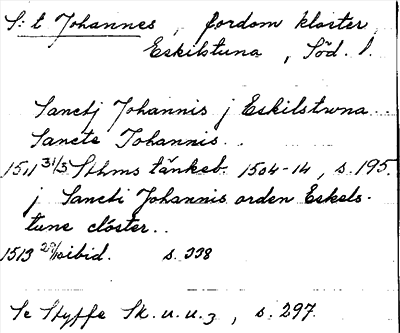 S:t Johannes, fordom kloster,
Eskilstuna, Söd. l.
Sanctj Johannis j Eskilstwna..
Sancte Johannis..
1511 31/5 Sthms tänkeb. 1504-14, s. 195.
j Sancti Johannis orden Eskels-
tune clóster..
1513 ibid. s. 338
Se Styffe Sk. u. u. 3, s. 297.